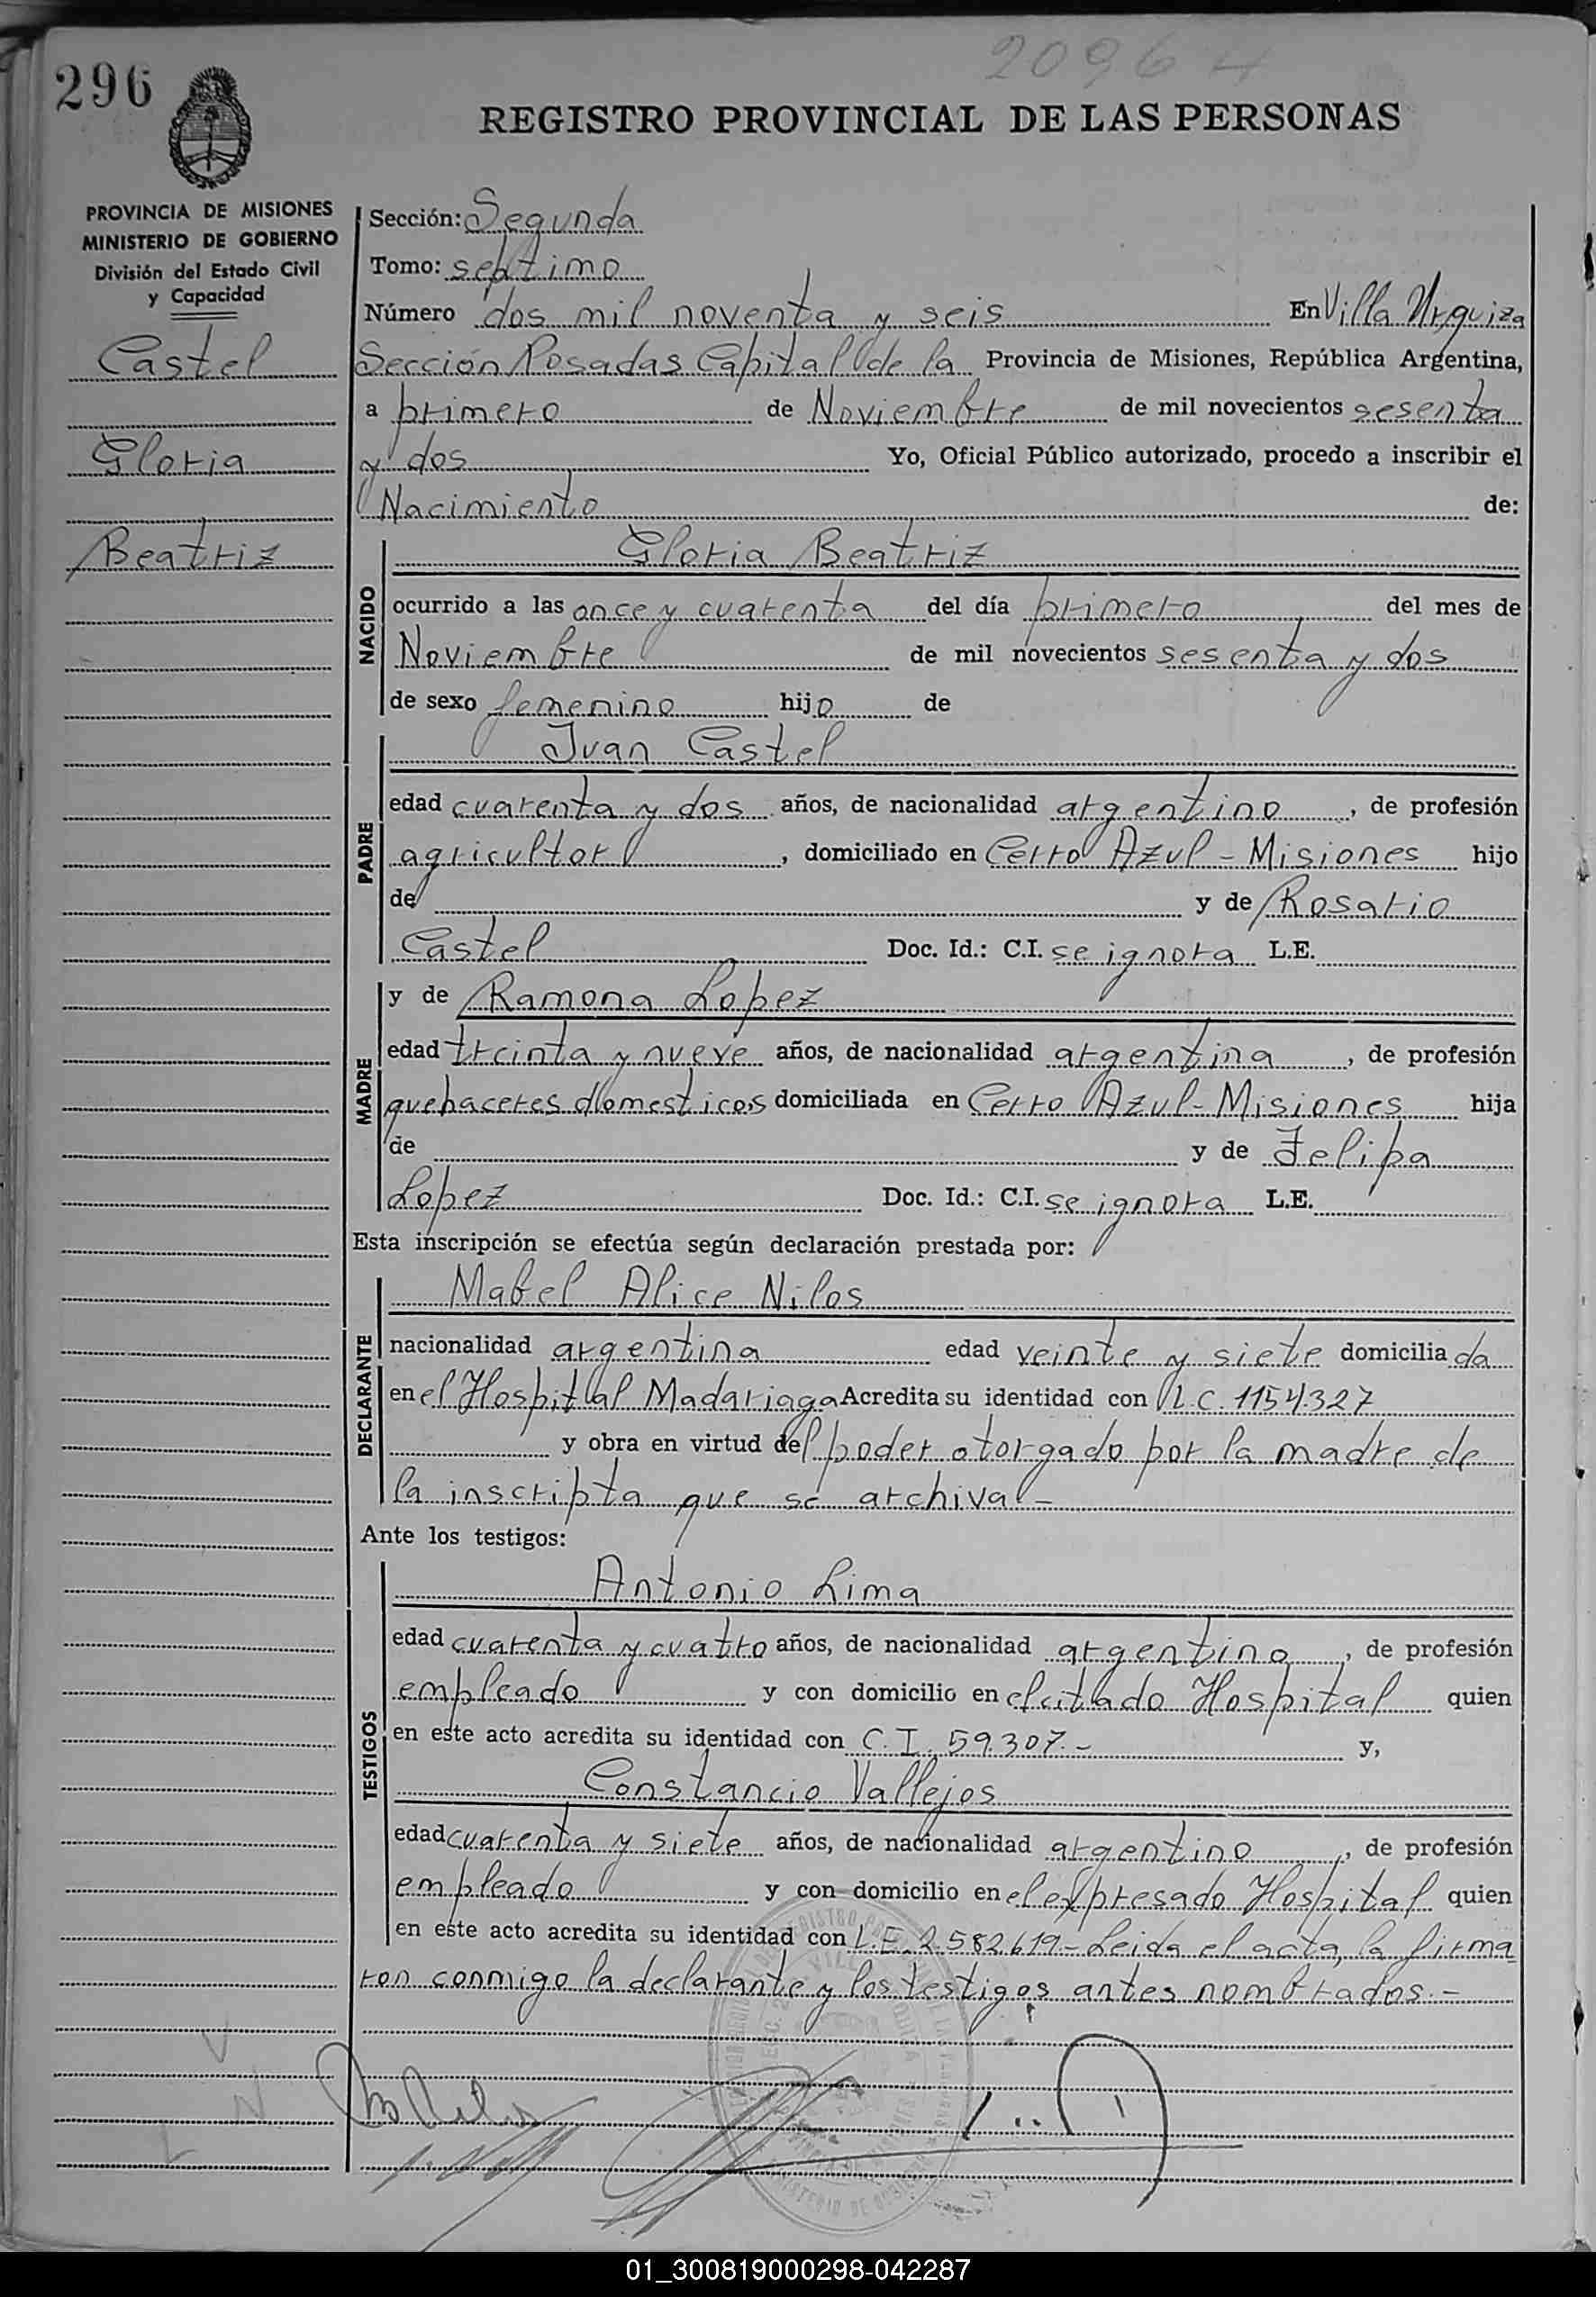 296
2096 H
REGISTRO PROVINCIAL DE LAS PERSONAS
PROVINCIA DE MISIONES
MINISTERIO DE GOBIERNO
División del Estado Civil
y Capacidad
Castel
Gloria
Beatriz
Sección: Segunda
Tomo: septimo
Número dos mil noventa y seis En Villa Urquiza
Sección Posadas Capital de la Provincia de Misiones, República Argentina,
a primero de Noviembre de mil novecientos sesenta
y dos Yo, Oficial Público autorizado, procedo a inscribir el
Nacimiento de:
NACIDO
Gloria Beatriz
ocurrido a las once y cuarenta del día primero del mes de
Noviembre de mil novecientos sesenta y dos
de sexo femenino hijo de
PADRE
Juan Castel
edad cuarenta y dos años, de nacionalidad argentino, de profesión
agricultor, domiciliado en Cerro Azul - Misiones hijo
de y de Rosario
Castel Doc. Id.: C.I. se ignora L.E.
MADRE
y de Ramona Lopez
edad treinta y nueve años, de nacionalidad argentina, de profesión
quehaceres domesticos domiciliada en Cerro Azul - Misiones hija
de y de Felipa
Lopez Doc. Id.: C.I. se ignora L.E.
Esta inscripción se efectúa según declaración prestada por:
DECLARANTE
Mabel Alice Nilos
nacionalidad argentina edad veinte y siete domiciliada
en el Hospital Madariaga Acredita su identidad con L.C. 1154.327
y obra en virtud del poder otorgado por la madre de
la inscripta que se archiva -
Ante los testigos:
TESTIGOS
Antonio Lima
edad cuarenta y cuatro años, de nacionalidad argentino, de profesión
empleado y con domicilio en el citado Hospital quien
en este acto acredita su identidad con C.I. 59.307.- y,
Constancio Vallejos
edad cuarenta y siete años, de nacionalidad argentino, de profesión
empleado y con domicilio en el expresado Hospital quien
en este acto acredita su identidad con L.E. 2.582.619 - Leida el acta, la firma
ron conmigo la declarante y los testigos antes nombrados.-
01_300819000298-042287